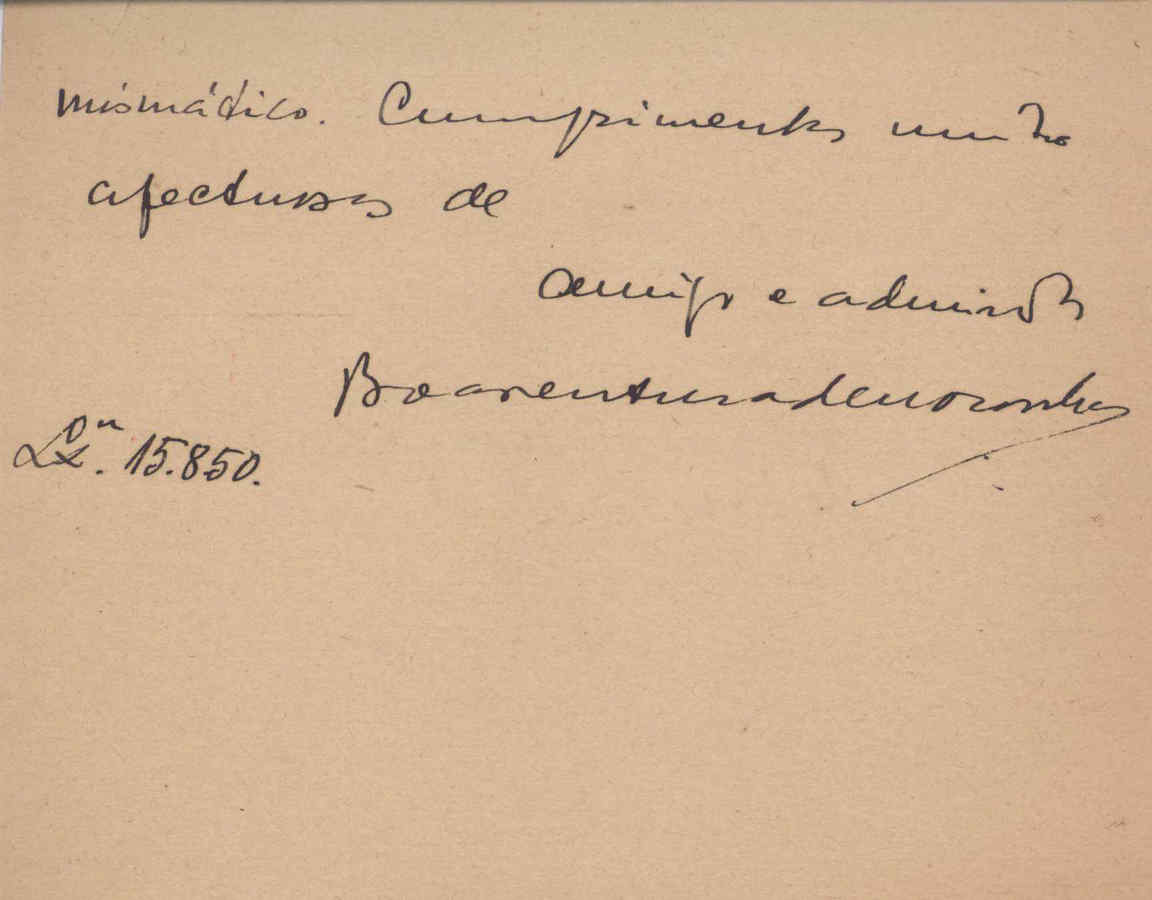 mismático. Cumprimentos muito
afectuosos de
amigo e admirador
Boaventura de Noronha
Lxª. 15.8.50.